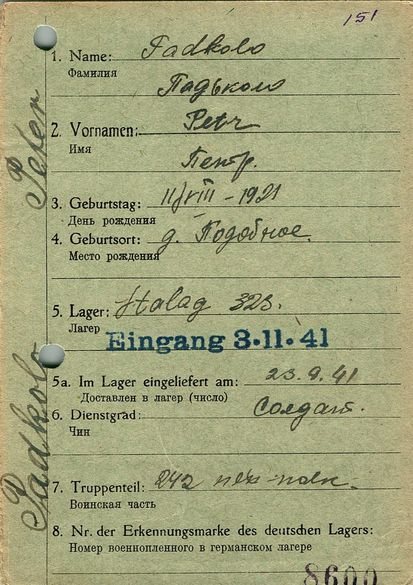 151
1. Name: Padkolo
Фамилия
Падьколо
2. Vornamen: Petr
Имя
Петр.
3. Geburtstag: 11/VIII - 1921
День рождения
4. Geburtsort: д. Подобное.
Место рождения
5. Lager: Stalag 323.
Лагер
Eingang 3·11·41
5a. Im Lager eingeliefert am: 23.9.41
Доставлен в лагер (число)
6. Dienstgrad: Солдат.
Чин
7. Truppenteil: 242
Воинская часть
8. Nr. der Erkennungsmarke des deutschen Lagers:
Номер военнопленного в германском лагере
8600
Padkolo Peter